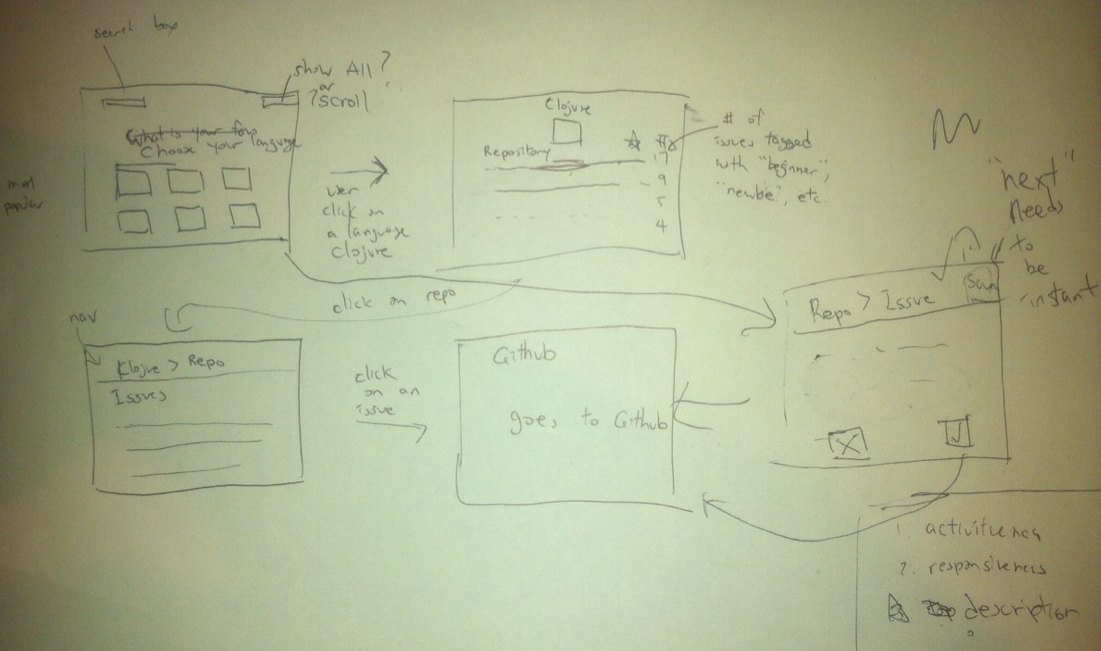 search box
show All?
or
?scroll
What is your fav
Choose your language
most
popular
user
click on
a language
clojure
Clojure
Repository
#
7
9
5
4
# of
issues tagged
with "beginner",
"newbei", etc.
"next"
needs
to
be
instant
click on repo
nav
Klojue > Repo
Issues
click
on an
issue
Github
goes to Github
Repo > Issue
X
1. activitiveness
2. responsiveness
3. description
?